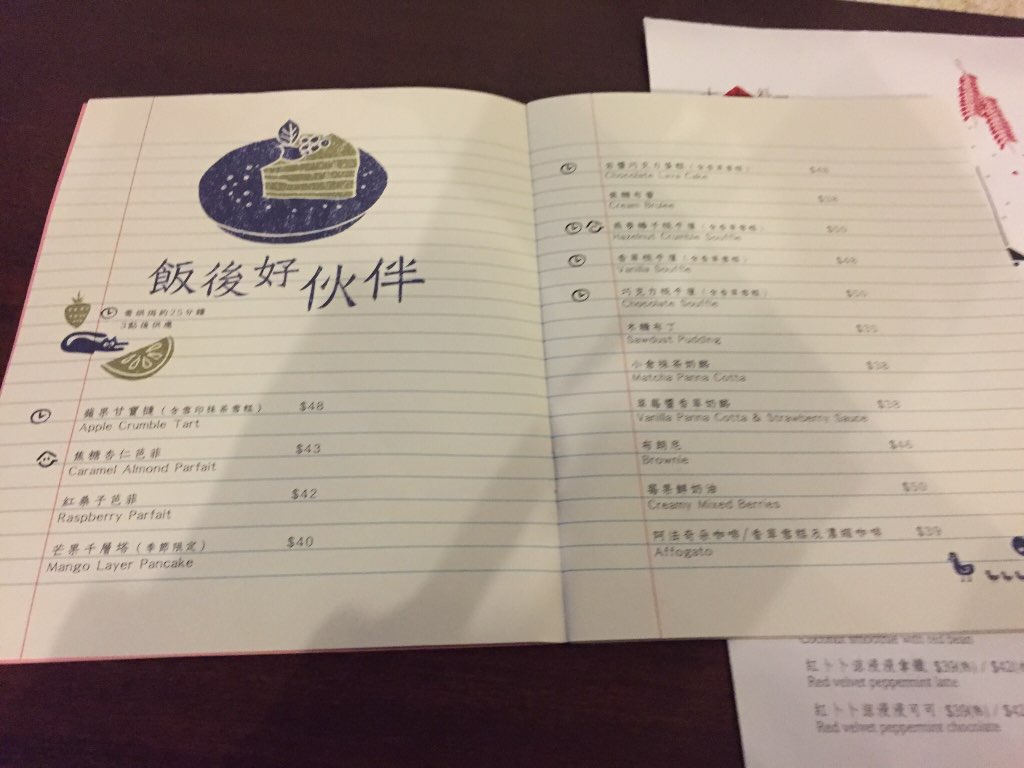 飯後好伙伴
需烘焗約25分鐘
3點後供應
蘋果甘寶撻（含雪印抹茶雪糕） $48
Apple Crumble Tart
焦糖杏仁芭菲 $43
Caramel Almond Parfait
紅桑子芭菲 $42
Raspberry Parfait
芒果千層塔（季節限定） $40
Mango Layer Pancake
岩醬巧克力蛋糕（含香草雪糕） $48
Chocolate Lava Cake
焦糖布蕾 $38
Cream Brulee
焦香榛子梳乎厘（含香草雪糕） $50
Hazelnut Crumble Souffle
香草梳乎厘（含香草雪糕） $48
Vanilla Souffle
巧克力梳乎厘（含香草雪糕） $50
Chocolate Souffle
木糠布丁 $35
Sawdust Pudding
小倉抹茶奶酪 $38
Matcha Panna Cotta
草莓醬香草奶酪 $38
Vanilla Panna Cotta & Strawberry Sauce
布朗尼 $46
Brownie
莓果鮮奶油 $50
Creamy Mixed Berries
阿法奇朵咖啡/香草雪糕及濃縮咖啡 $39
Affogato
Coconut smoothie with red bean
紅卜卜浪漫漫拿鐵 $39(熱) / $42
Red velvet peppermint latte
紅卜卜浪漫漫可可 $39(熱) / $42
Red velvet peppermint chocolate